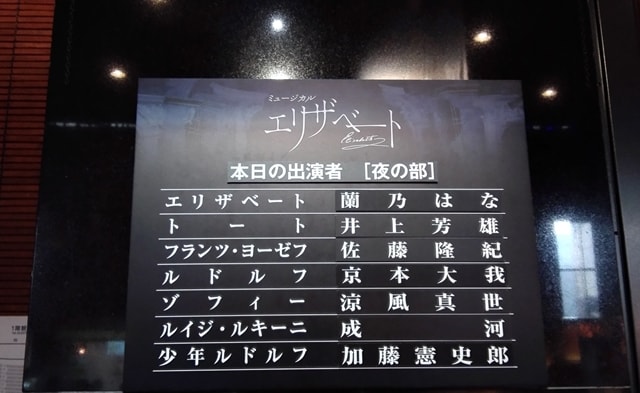 ミュージカル
エリザベート
Elisabeth
本日の出演者 [夜の部]
エリザベート 蘭乃はな
トート 井上芳雄
フランツ・ヨーゼフ 佐藤隆紀
ルドルフ 京本大我
ゾフィー 涼風真世
ルイジ・ルキーニ 成河
少年ルドルフ 加藤憲史郎